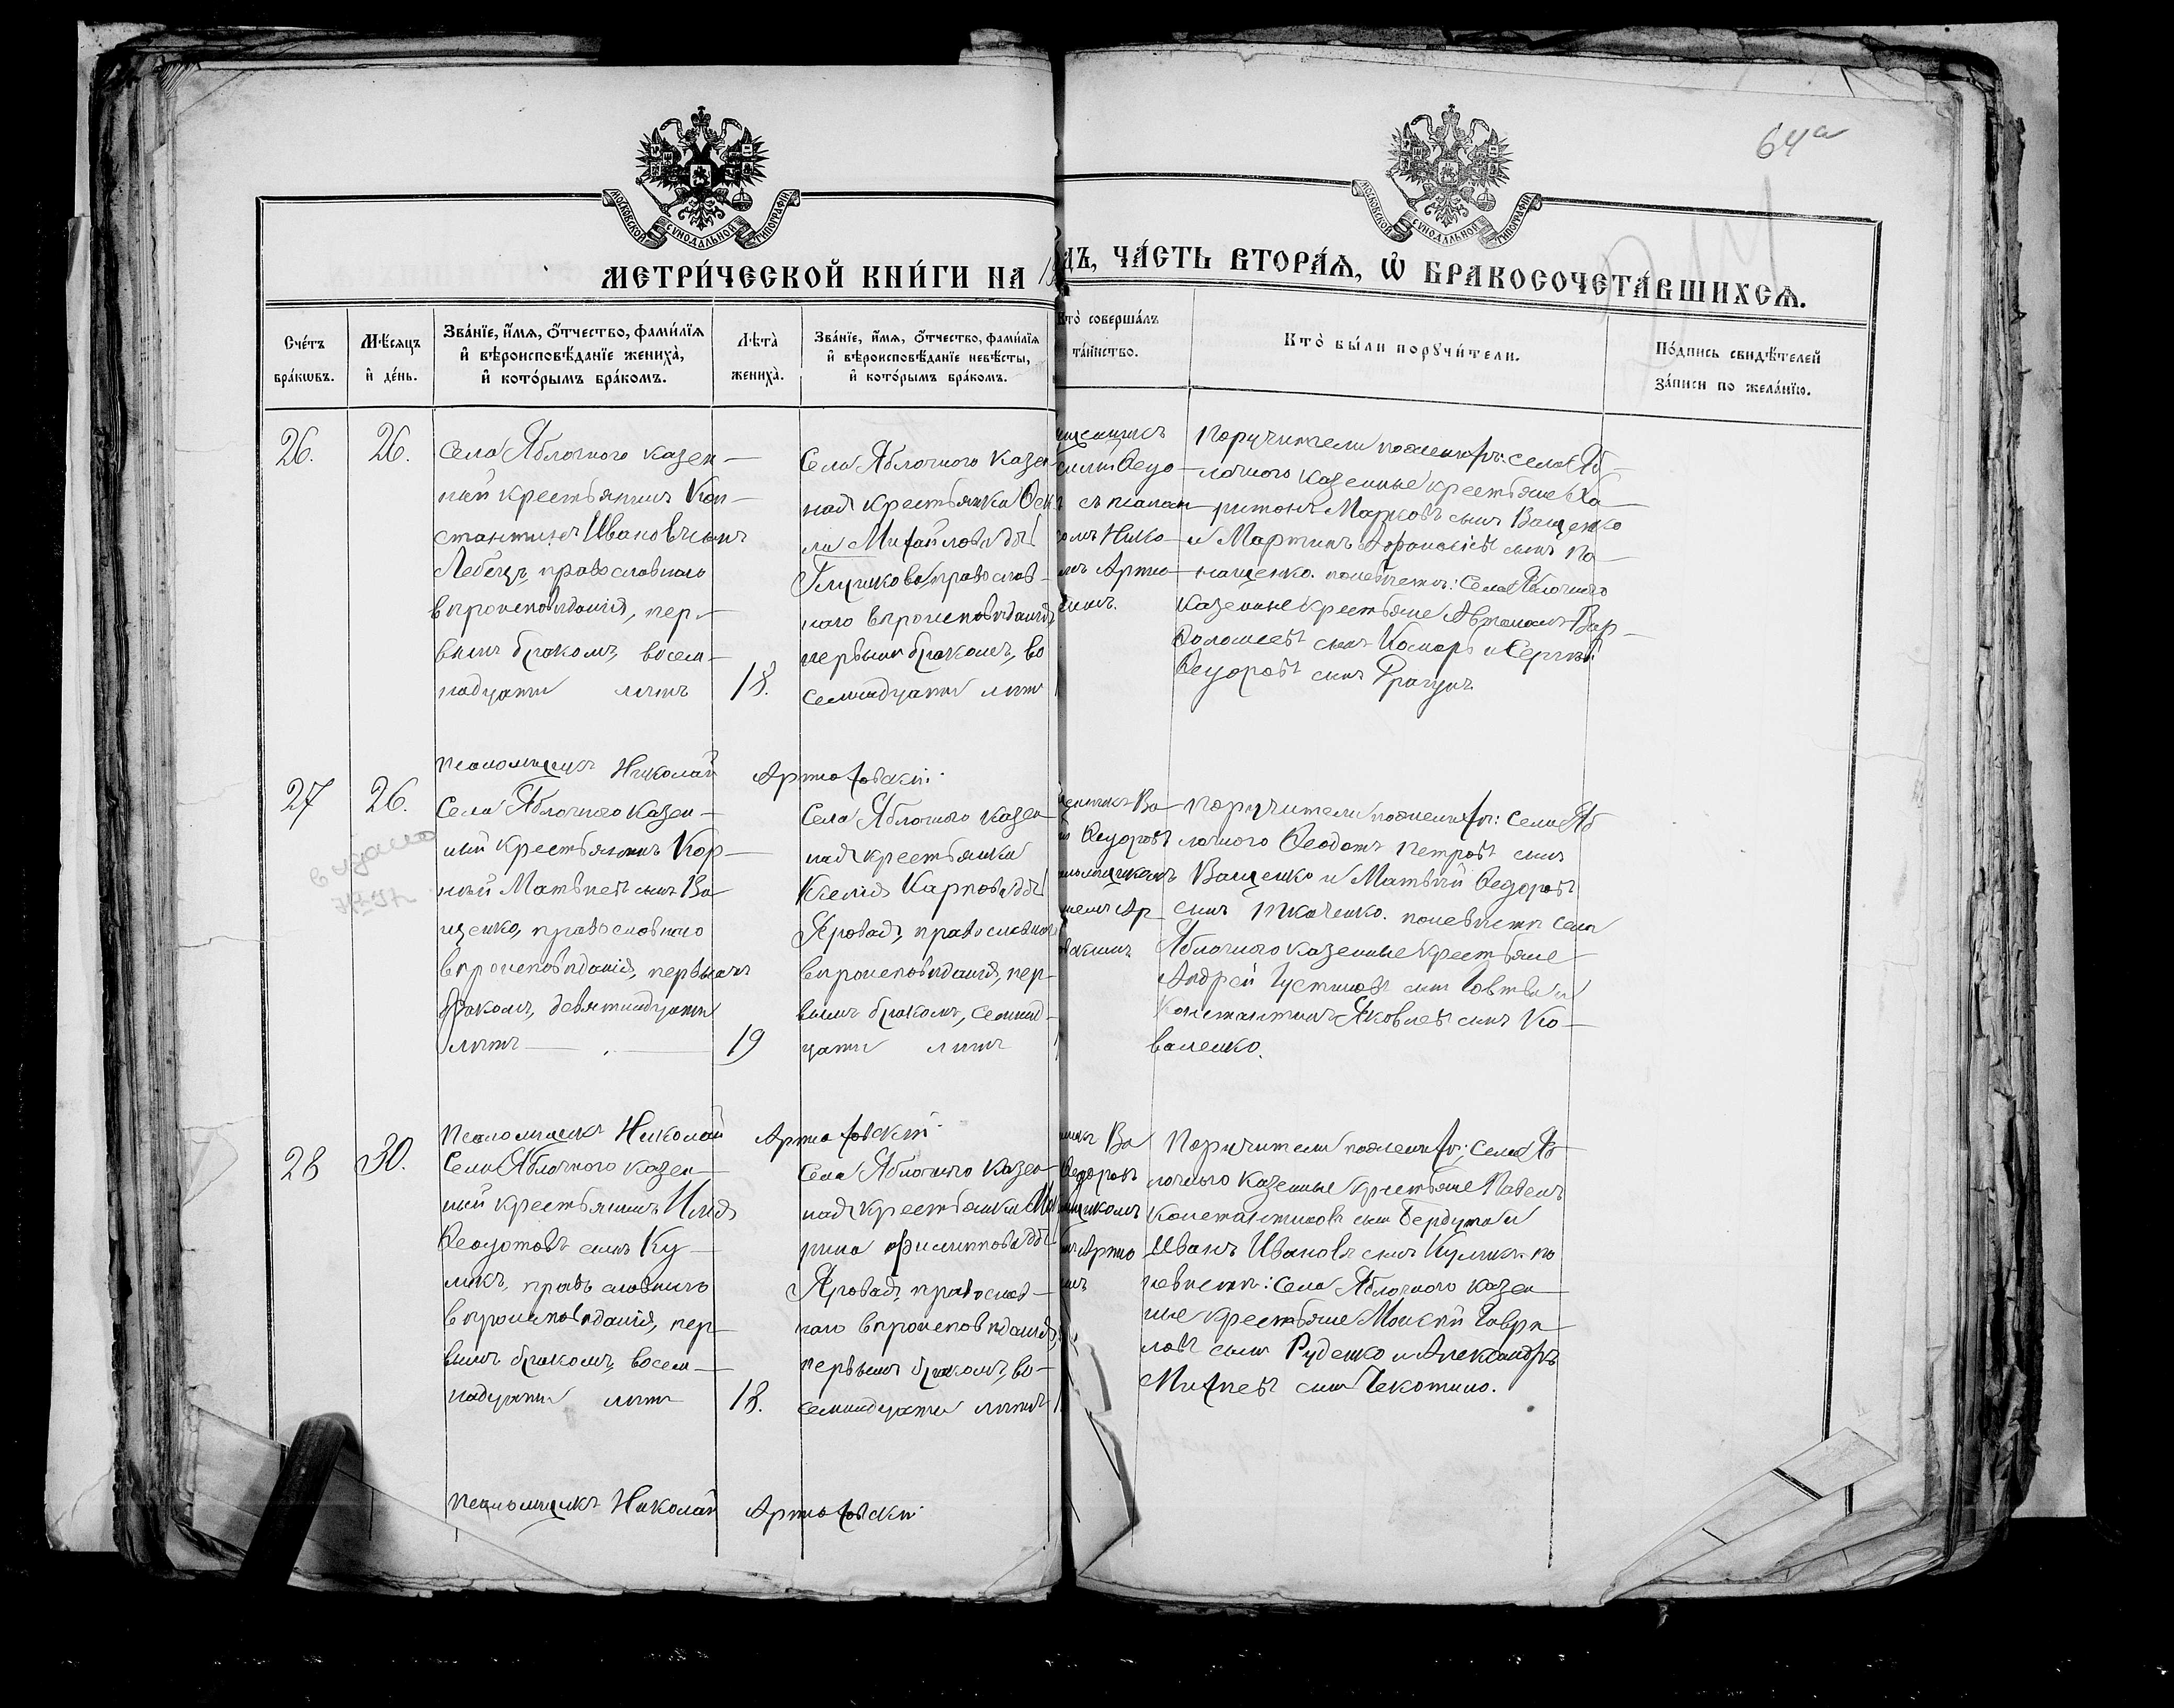 64а
МОСКОВСКОЙ СѴНОДАЛЬНОЙ ТИПОГРАФІИ
МОСКОВСКОЙ СѴНОДАЛЬНОЙ ТИПОГРАФІИ
МЕТРИ́ЧЕСКОЙ КНИ́ГИ НА
ДЪ, ЧА́СТЬ ВТОРА́Ѧ, Ѽ БРАКОСОЧЕТА́ВШИХСѦ.
Сче́тъ
бра́кѡвъ.
Мѣ́сяцъ
и҆ де́нь.
Зва́нїе, и҆́мѧ, ѻ҆́тчество, фами́лїѧ
и҆ вѣроисповѣ́данїе жениха̀,
и҆ кото́рымъ бра́комъ.
Лѣта̀
жениха̀.
Зва́нїе, и҆́мѧ, ѻ҆́тчество, фами́лїѧ
и҆ вѣроисповѣ́данїе невѣ́сты,
и҆ кото́рымъ бра́комъ.
Кто̀ соверша́лъ
та́инство.
Кто̀ бы́ли порꙋчи́тели.
По́дпись свидѣ́телей
за́писи по жела́нїю.
26.
26.
Села Яблочного казен-
ный крестьянинъ Кон-
стантинъ Ивановъ сынъ
Лебедь, православнаго
вѣроисповѣданія, пер-
вымъ бракомъ, восем-
надцати лѣтъ
18.
Села Яблочного казен
ная крестьянка
Михайлова дочь
православ-
наго вѣроисповѣданія
первымъ бракомъ, во
семнадцати лѣтъ
Ѳеодо-
съ псалом
Нико-
Артю
Поручители по женихѣ: села Яб-
лочного казенные крестьяне Ха-
ритонъ Марковъ сынъ Ващенко
и Мартинъ Афанасіевъ сынъ По-
нащенко. по невѣстѣ: Села Яблочного
казенные крестьяне Автономъ Вар-
ѳоломеевъ сынъ Комаръ и Сергѣй
Ѳеодоровъ сынъ
Псаломщикъ Николай Артюховскій.
27
26.
Села Яблочного казен-
ный крестьянинъ Кор-
нѣй Матвѣевъ сынъ Ва
щенко, православнаго
вѣроисповѣданія, первымъ
бракомъ, девятнадцати
лѣтъ
19
Села Яблочного казен
ная крестьянка
Ксенія Карпова дочь
Яровая, православнаго
вѣроисповѣданія, пер-
вымъ бракомъ, семнад-
цати лѣтъ
Ва
Ѳеодоровъ
Ар
Поручители по женихѣ: села Яб
лочного Ѳеодотъ Петровъ сынъ
Ващенко и Матвѣй Ѳедоровъ
сынъ Ткаченко. по невѣстѣ села
Яблочного казенные крестьяне
Андрей Устиновъ сынъ Говтва и
Константинъ Яковлевъ сынъ Ко-
валенко.
Псаломщикъ Николай Артюховскій.
28
30.
Села Яблочного казен-
ный крестьянинъ Илія
Ѳеодотовъ сынъ Ку-
ликъ, православнаго
вѣроисповѣданія, пер-
вымъ бракомъ, восем-
надцати лѣтъ
18.
Села Яблочного казен-
ная крестьянка Ма
рина Филиппова дочь
Яровая, православ-
наго вѣроисповѣданія,
первымъ бракомъ, во-
семнадцати лѣтъ
Ва
Ѳедоров
Артю
Поручители по женихѣ: села Яб-
лочного казенные крестьяне Павелъ
Константиновъ сынъ Бердута и
Иванъ Ивановъ сынъ Куликъ. по
невѣстѣ: Села Яблочного казен-
ные крестьяне Моисей Гаври-
ловъ сынъ Руденко и Александръ
Михеевъ сынъ Чекотило.
Псаломщикъ Николай Артюховскій